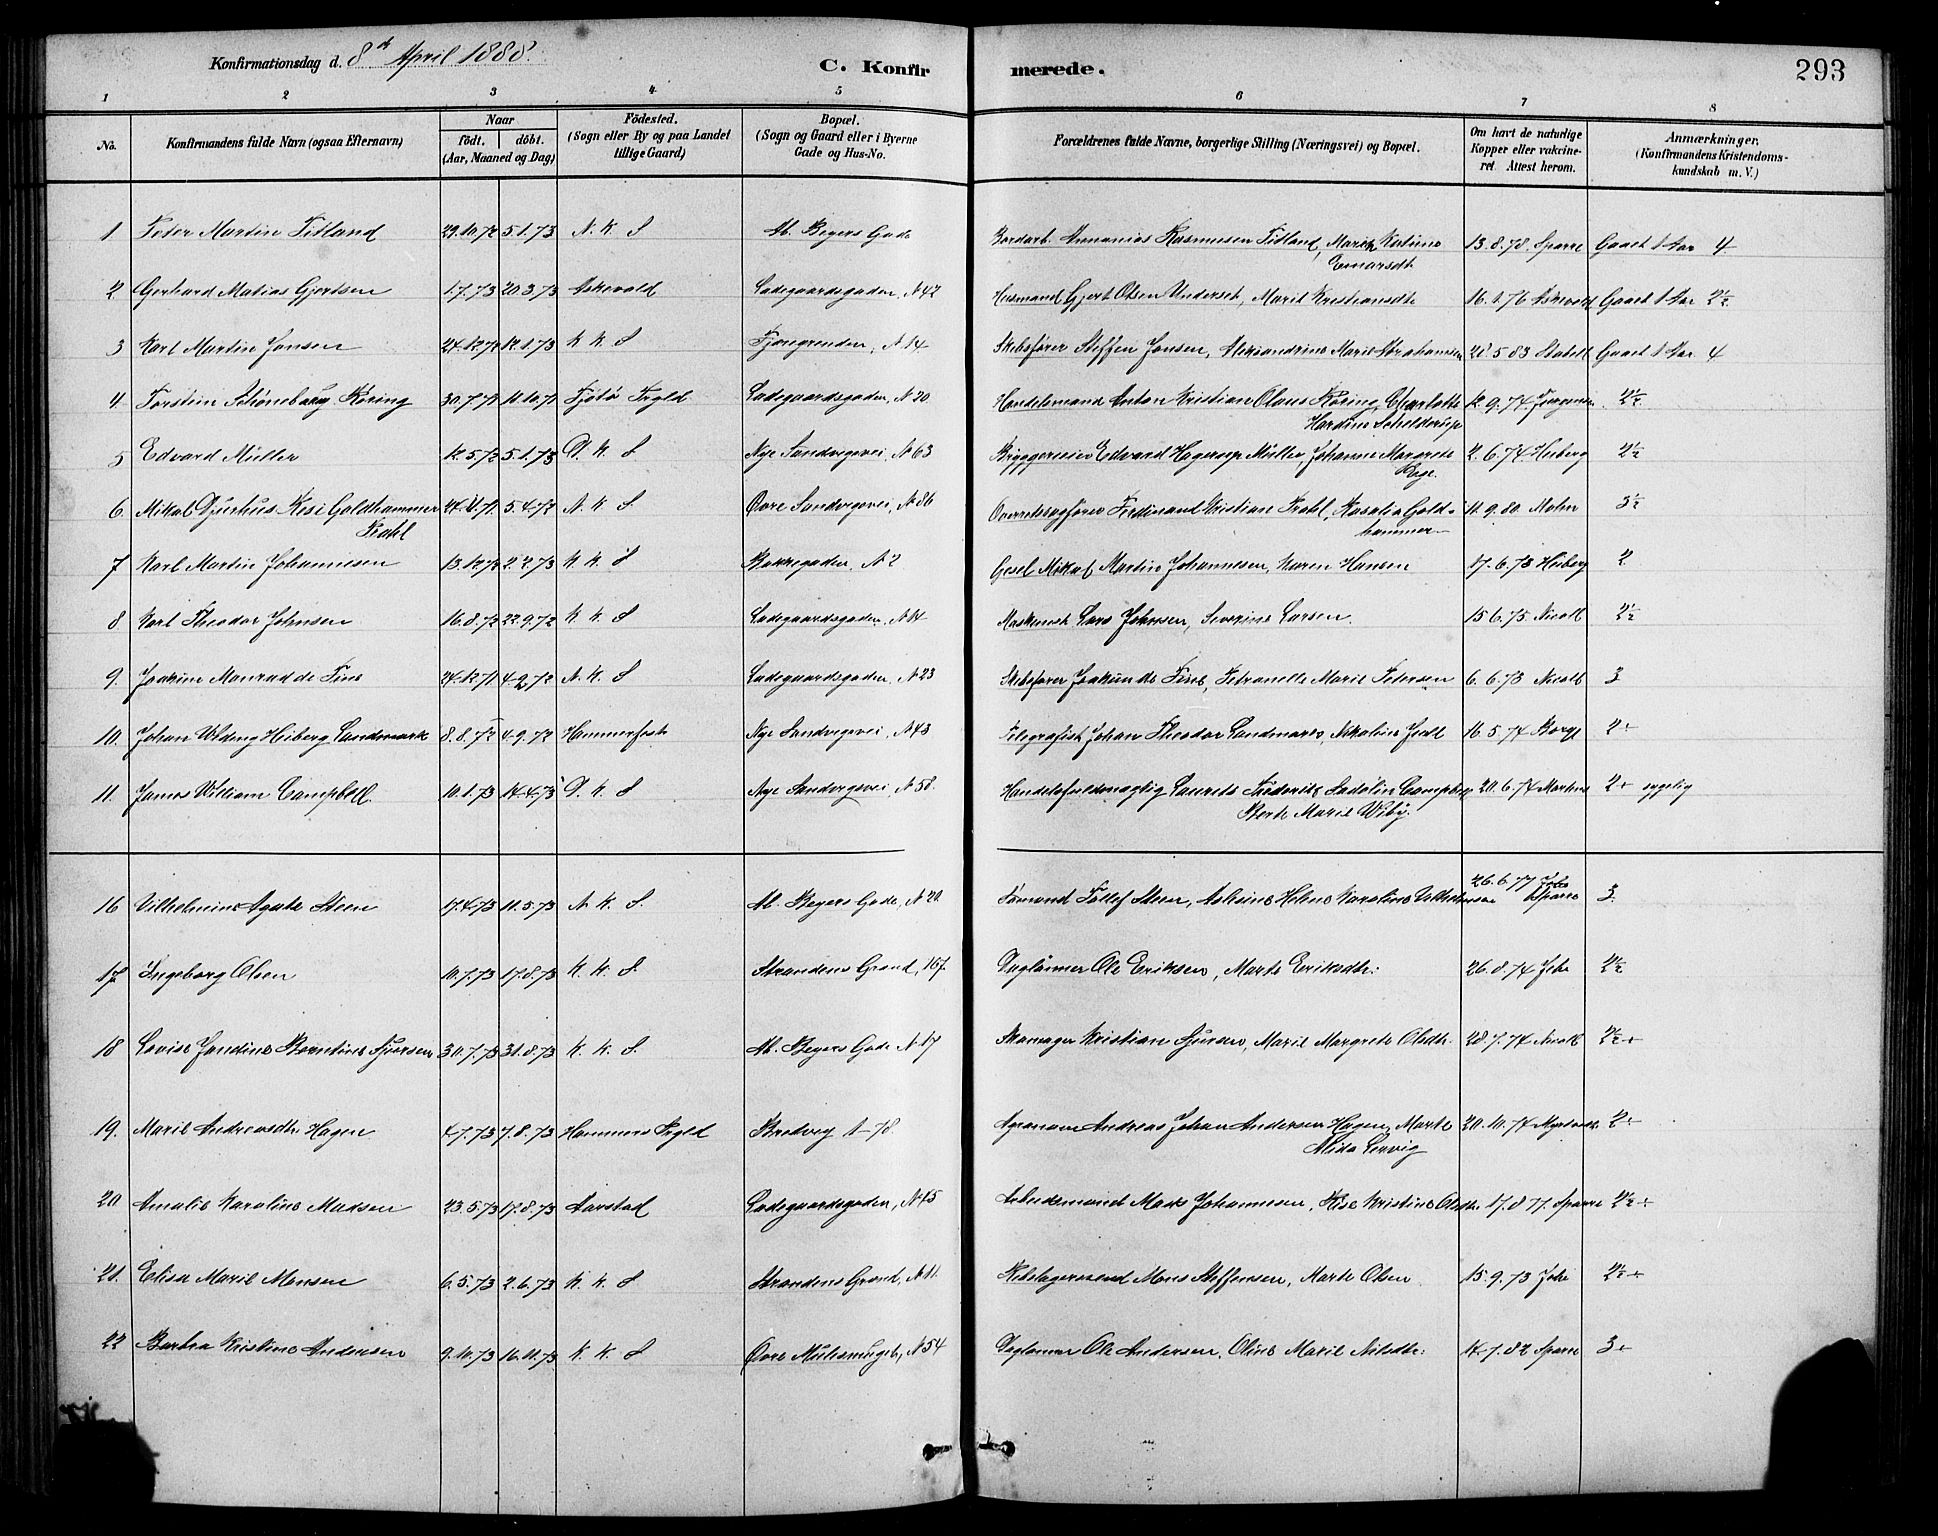 Konfirmationsdag d. 8de April 1888. C. Konfirmerede. 293
1 2 3 4 5 6 7 8
No. Konfirmandens fulde Navn (ogsaa Efternavn) Naar födt. döbt. (Aar, Maaned og Dag) Födested. (Sogn eller By og paa Landet tillige Gaard) Bopæl. (Sogn og Gaard eller i Byerne Gade og Hus-No. Forældrenes fulde Navne, borgerlige Stilling (Næringsvei) og Bopæl. Om havt de naturlige Kopper eller vakcineret. Attest herom. Anmærkninger. (Konfirmandens Kristendomskundskab m. V.)
1 Peter Martin Titland 29.10.72 5.1.73 N. K. S Ab. Beyers Gade Bordarb. Annanias Rasmussen Titland, Marie Katrine Einarsdt. 13.8.78. Sparre Gaaet 1 Aar 4
2. Gerhard Matias Gjertsen 1.7.73 20.3.73 Askevold Ladegaardsgaden, N 42 Husmand Gjert Olsen Underset, Marie Kristiansdt 16.1.76 Askevold Gaaet 1 Aar 2½
3 Karl Martin Jonsen 24.12.72 12.1.73 K K S N 14 Skibsfører Steffen Jonsen, Aleksandrine Marie 5.83 Gaaet 1 Aar 4
4. Torstein Schöneberg Röring 30.7.71 11.10.71 Fjötö Prgld Ladegaardsgaden, N 20 Handelsmand Anton Kristian Olaus Röring, Charlotte Hardine Schelderup 12.9.74 Jörgensen 2½
5 Edvard Müller 12.5.72 5.1.73 D. K. S Nye Sandvigsvei, N 63 Bryggerieier Edvard Hagerup Müller, Johanne Margrete Bege. 2.6.74 Heiberg 2½
6. Mikal Djurhus Resi Goldhammer Prahl 24.11.71 5.4.72 N. K. S. Övre Sandvigsvei, N 86 Overretssagförer Ferdinand Kristian Prahl, Rosalia Goldhammer 11.9.80. Mohn 3½
7 Karl Martin Johannesen 13.12.72 2.2.73 K K S Bakkegaden, N 2 Gesel Mikal Martin Johannesen, Karen Hansen 17.6.73 Heiberg 2
8 Karl Theodor Johnsen 16.8.72 22.9.72 K K S Ladegaardsgaden, N 14 Maskinist Lars Johnsen, Severine Larsen. 15.6.75. Nicoll 2½
9. Joakim Monrad de Fine 24.12.71 4.2.72 N. K. S Ladegaardsgaden, N 23 Skibsfører Joakim de Fine, Petranelle Marie Petersen 6.6.73 Nicoll 3
10. Johan Welding Heiberg Landmark 8.8.72 4.9.72 Hammerfest Nye Sandvigsvei, N 43 Telegrafist Johan Theodor Landmark, Nikoline 16.5.74 Borge 2+
11. James William Campbell 10.1.73 14.4.73 D. K. S Nye Sandvigsvei, N 58. Handelsfuldmægtig Laurits Frederik Sadolin Campbell Berte Marie Wiby. 20.6.74 Martens 2+ sygelig
16 Vilhelmine Agate Steen 17.4.73 11.5.73 N. K. S. Ab. Beyers Gade, N 20 Sömand Tollef Steen, Askine Helene Karoline Vilhelmsen 26.6.77 Sparre 3.
17. Ingeborg Olsen 10.7.73 17.8.73 K. K. S. Strandens Grand, 167. Daglönner Ole Eriksen, Marte Eriksdtr: 26.8.74 2½
18 Lovise Jondine Berntine Sjursen 30.7.73 31.8.73 K. K. S. Ab. Beyers Gade N 17 Skomager Kristian Sjursen, Marie Margrete Olsdtr. 28.7.74 Nicoll 2½+
19. Marie Andreasdtr. Hagen 4.7.73 7.8.73 Hammers Prgld Bredveg 1-78. Agronom Andreas Johan Andersen Hagen, Marte Alida Lervig 20.10.74 2+
20 Amalie Karoline Madsen 23.5.73 17.8.73 Aarstad Ladegaardsgaden, N 45 Arbeidsmand Mads Johannesen, Lise Kristine Olsdtr. 17.8.77. Sparre 2½+
21. Elisa Marie Monsen 6.5.73 2.6.73 K. K. S Strandens Grand, N 11. Rebslagersvend Mons Steffensen, Marte Olsen 15.9.73 2½+
22 Barbra Kristine Andersen 9.10.73 16.11.73 K. K. S Övre Mulesmuget, N 54 Daglönner Ole Andersen, Oline Marie Nilsdtr: 14.7.82 Sparre 3+